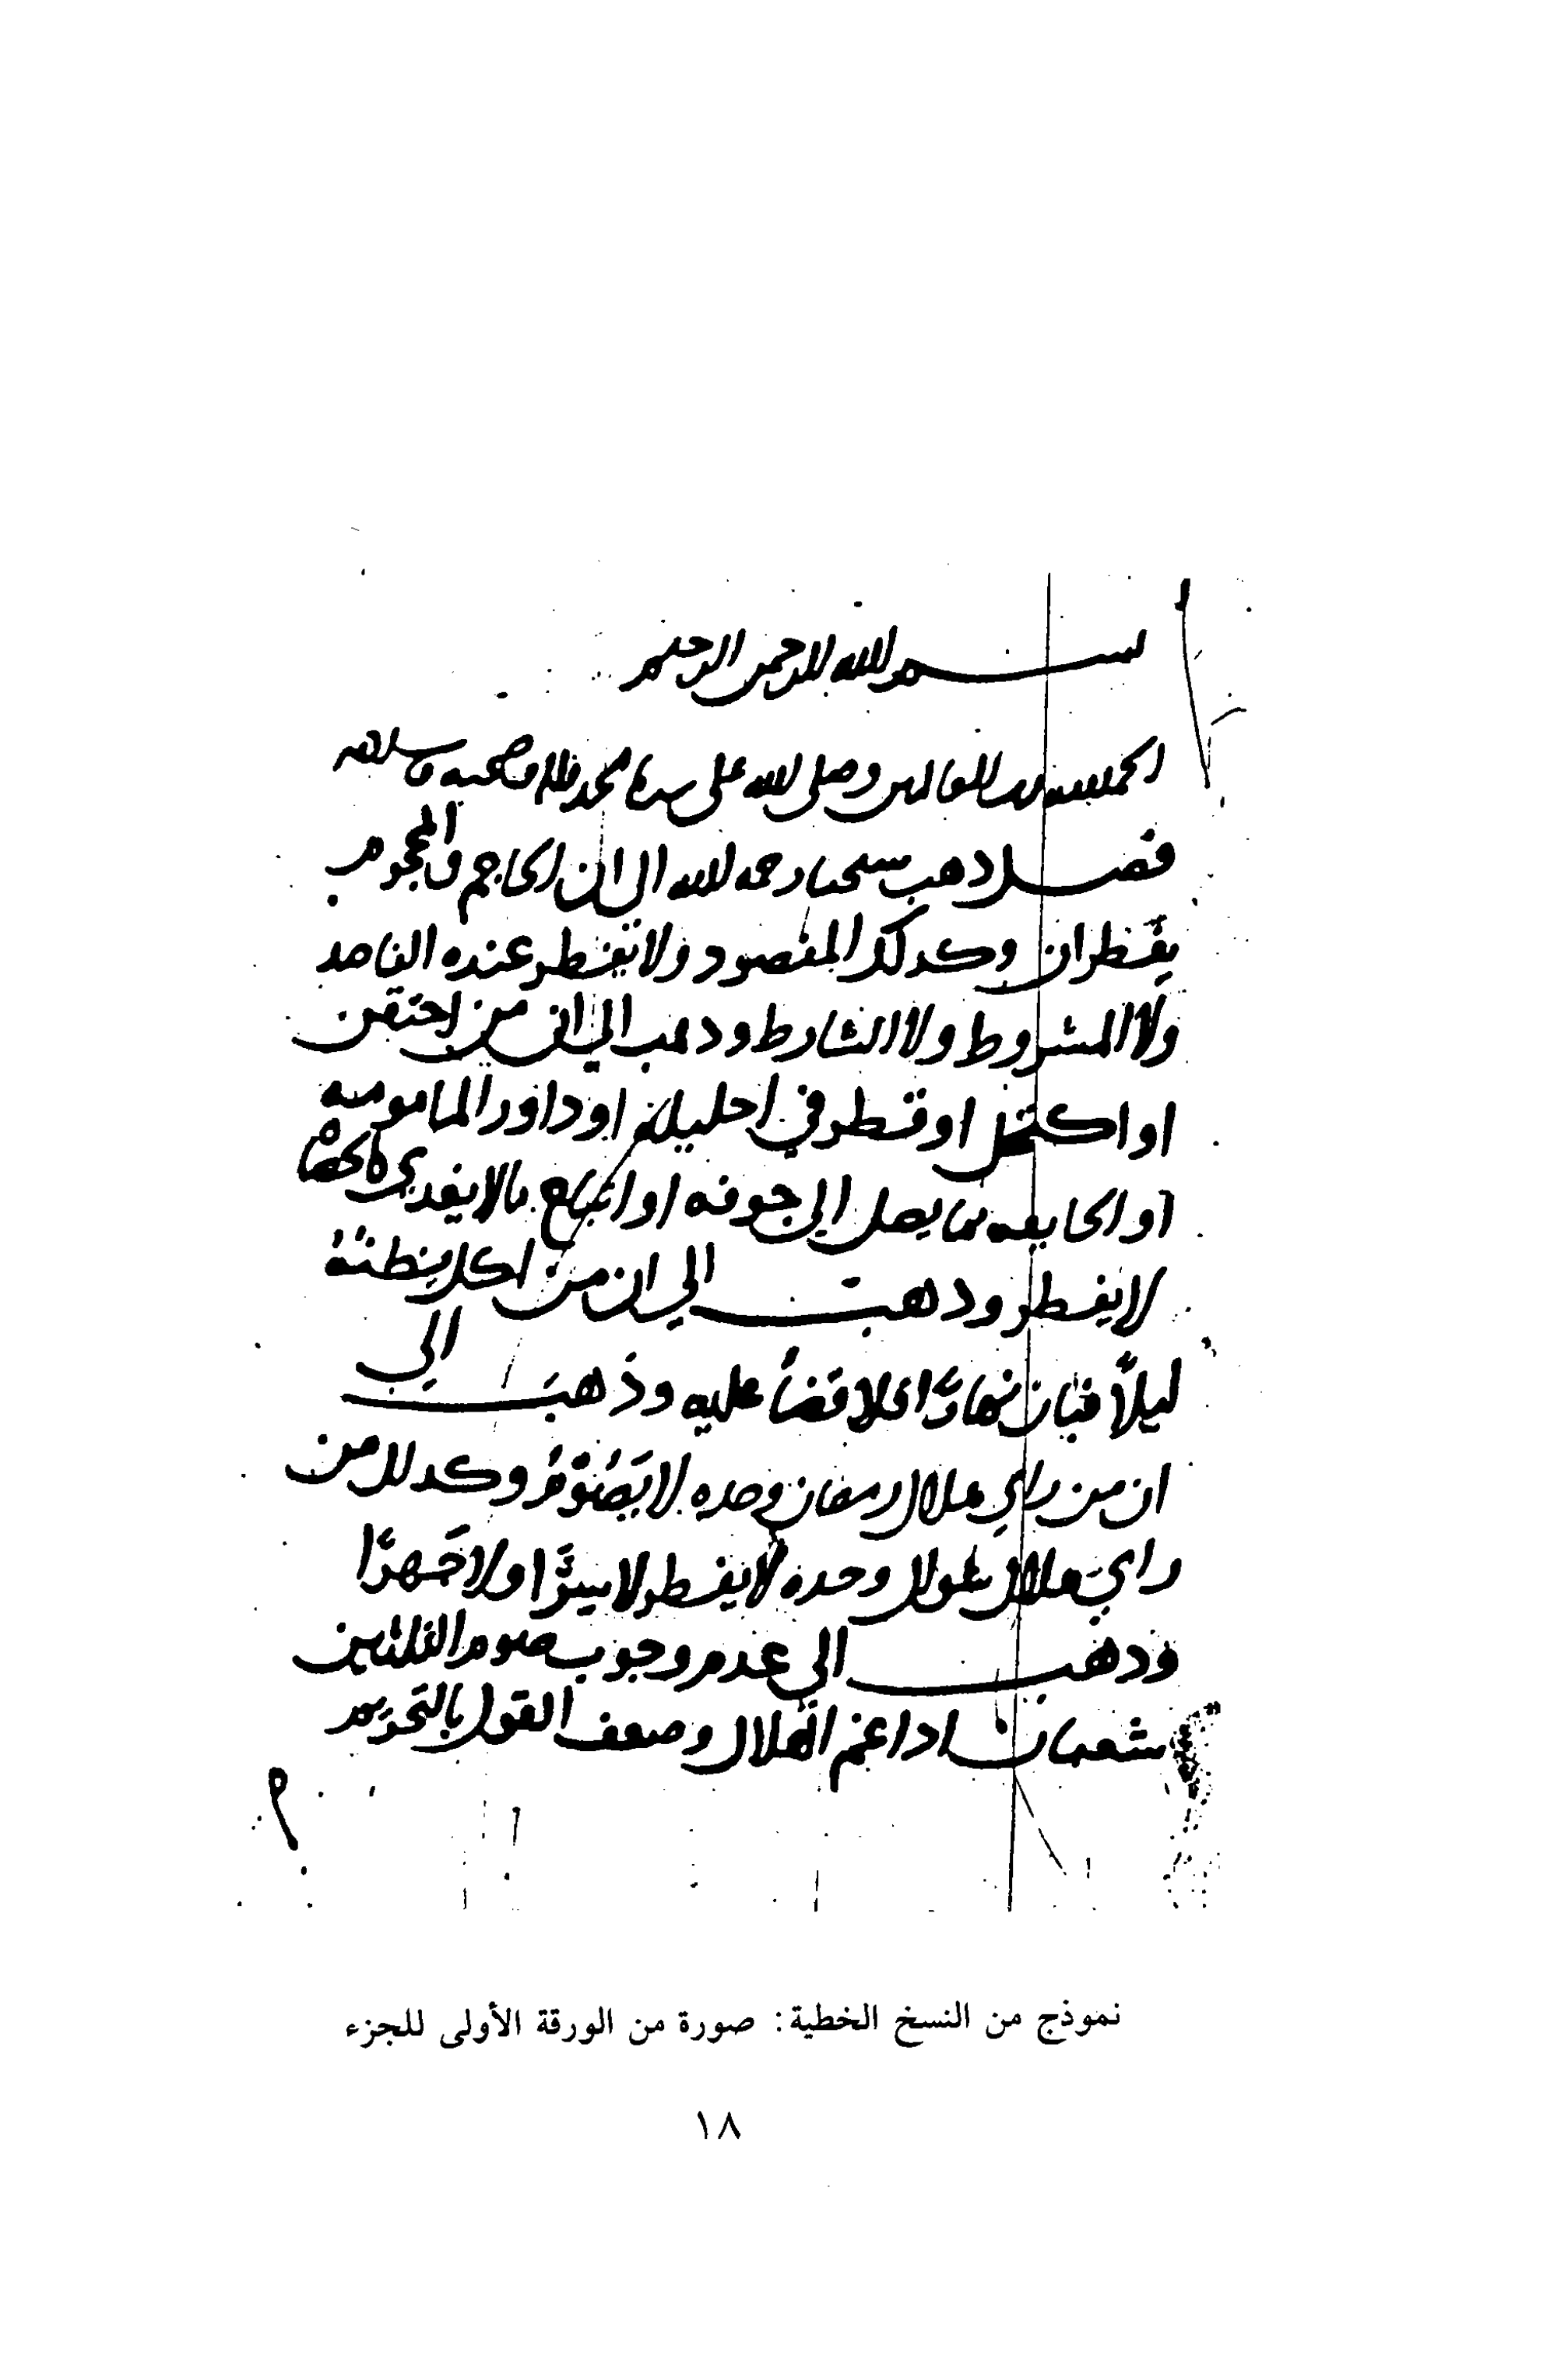 بسم الله الرحمن الرحيم
الحمد لله رب العالمين وصلى الله على سيدنا محمد واله وصحبه وسلم
فصل ذهب شيخنا رحمه الله الى ان الحاجم والمحجوم
يفطران وكذلك المفصود ولا يفطر عنده الفاصد
ولا المشروط ولا الشارط وذهب الي ان من احتقن
او اكتحل او قطر في احليله او داوي المامومه
او الجايفه بما يصل الي جوفه او ابتلع مالا يغدي كالحصاة
لا يفطر وذهب الي ان من اكل يظنه
ليلاً فبان نهارًا فلا قضأ عليه وذهبَ الي
ان من راي هلال رمضان وحده لا يَصُوْمُ وكدلك من
رايَ هلال شوال وحده لا يفطر لا سِرًّا ولا جَهرًا
وذهب الي عدم وجوب صوم الثلثين
شعبان ادا غم الهلال وضعف القول بالتحريم
نموذج من النسخ الخطية: صورة من الورقة الأولى للجزء
١٨